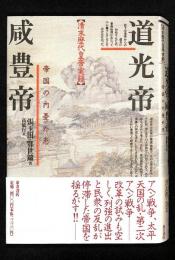 道光帝
咸豊帝
【清末歴代皇帝実録】
帝国の内憂外患
アヘン戦争、太平
天国の乱、第二次
アヘン戦争
改革の試みも空
しく列強の進出
と民衆の反乱が
停滞した帝国を
揺るがす!!